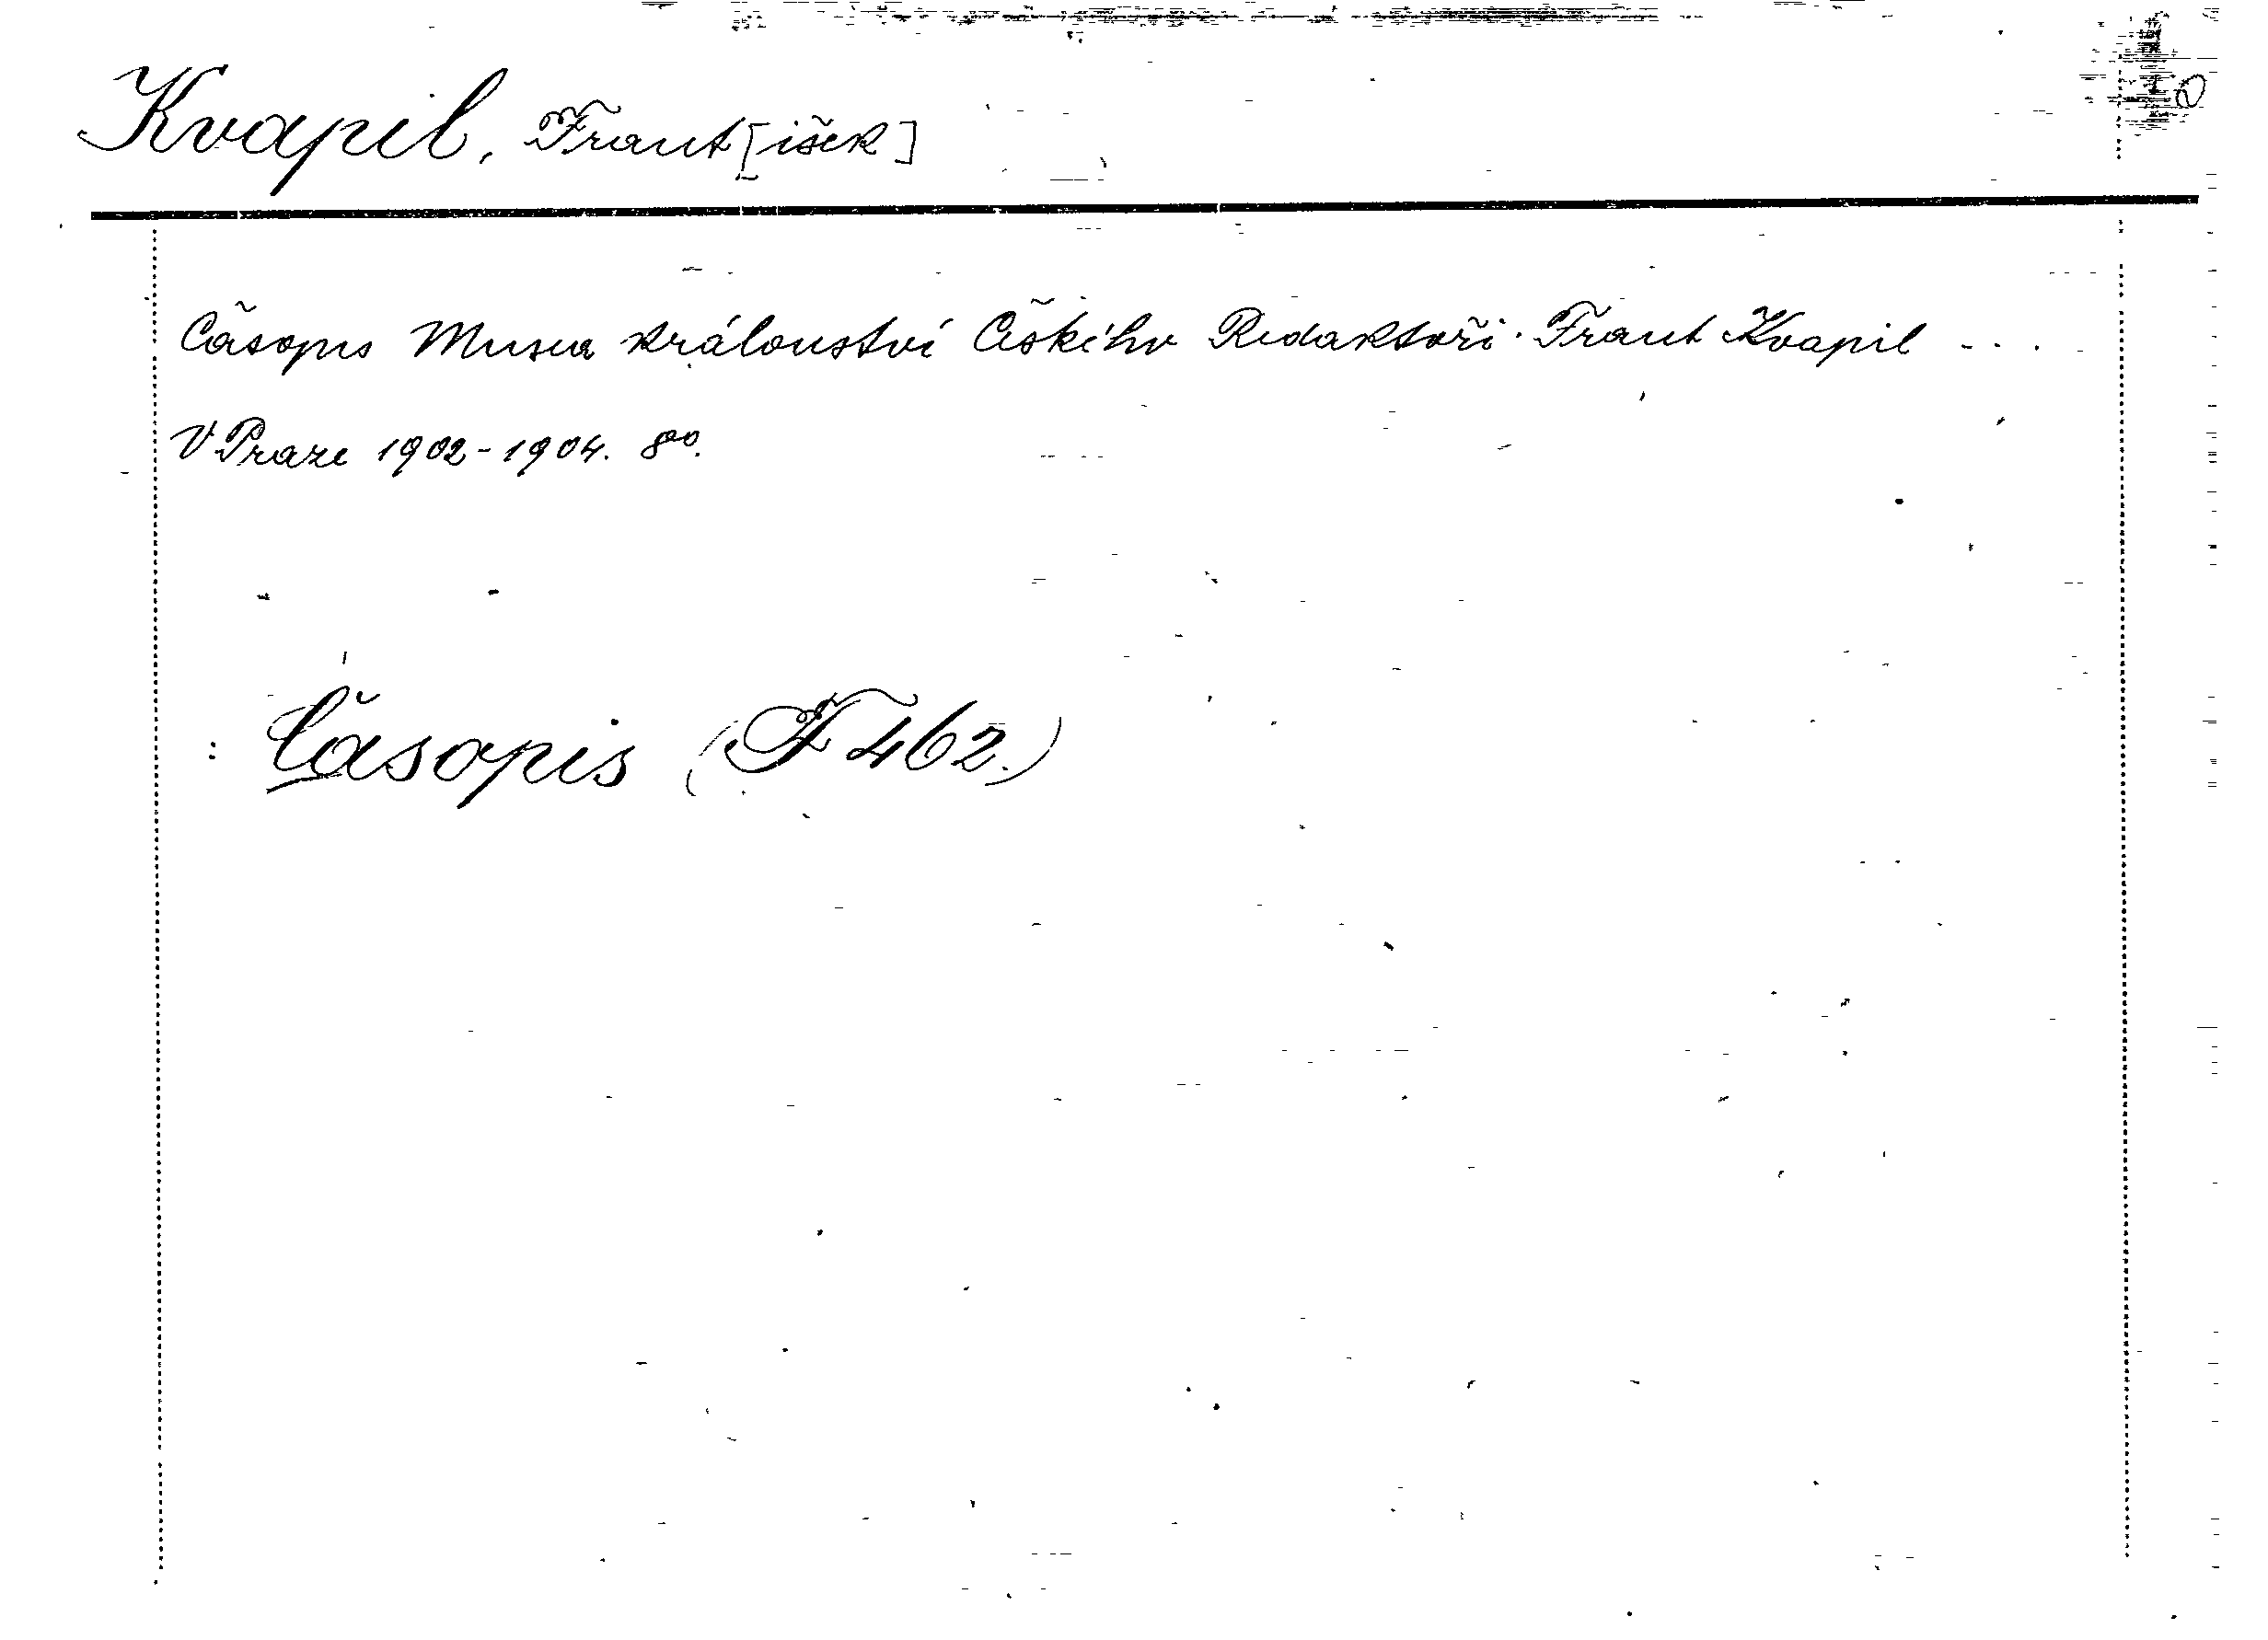 Kvapil, Frant[išek]
Časopis Musea království Českého Redaktoři. Frant Kvapil ...
V Praze 1902-1904. 8º.
: Časopis (F 462.)